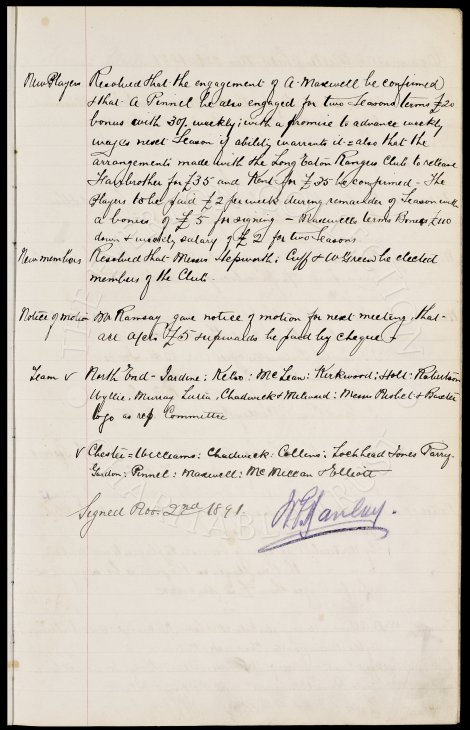 New Players Resolved that the engagement of A. Maxwell be confirmed
& that A Pinnel be also engaged for two Seasons terms £20
bonus with 30/- weekly; with a promise to advance weekly
wages next Season if ability warrants it & also that the
arrangements made with the Long Eaton Rangers Club to release
Hardbrother for £35 and Kent for £25 be confirmed - The
Players to be paid £2 per week during remainder of Season with
a bonus of £5 for signing - Maxwells terms Bonus £110
down & weekly salary of £2 for two Seasons
New members Resolved that Messrs Hepworth; Cuff & W Green be elected
members of the Club.
Notice of Motion Mr Ramsay gave notice of motion for next meeting, that
all a/cs £5 & upwards be paid by cheque
Team v North End - Jardine; Kelso: McLean; Kirkwood; Holt. Robertson
Wyllie, Murray Latta, Chadwick & Milward: Messrs & Baxter
to go as rep Committee
v Chester = Williams; Chadwick: Collins; Lochhead Jones Parry.
Gordon; Pinnel: Maxwell; McMillan & Elliott
Signed Nov. 2nd 1891.